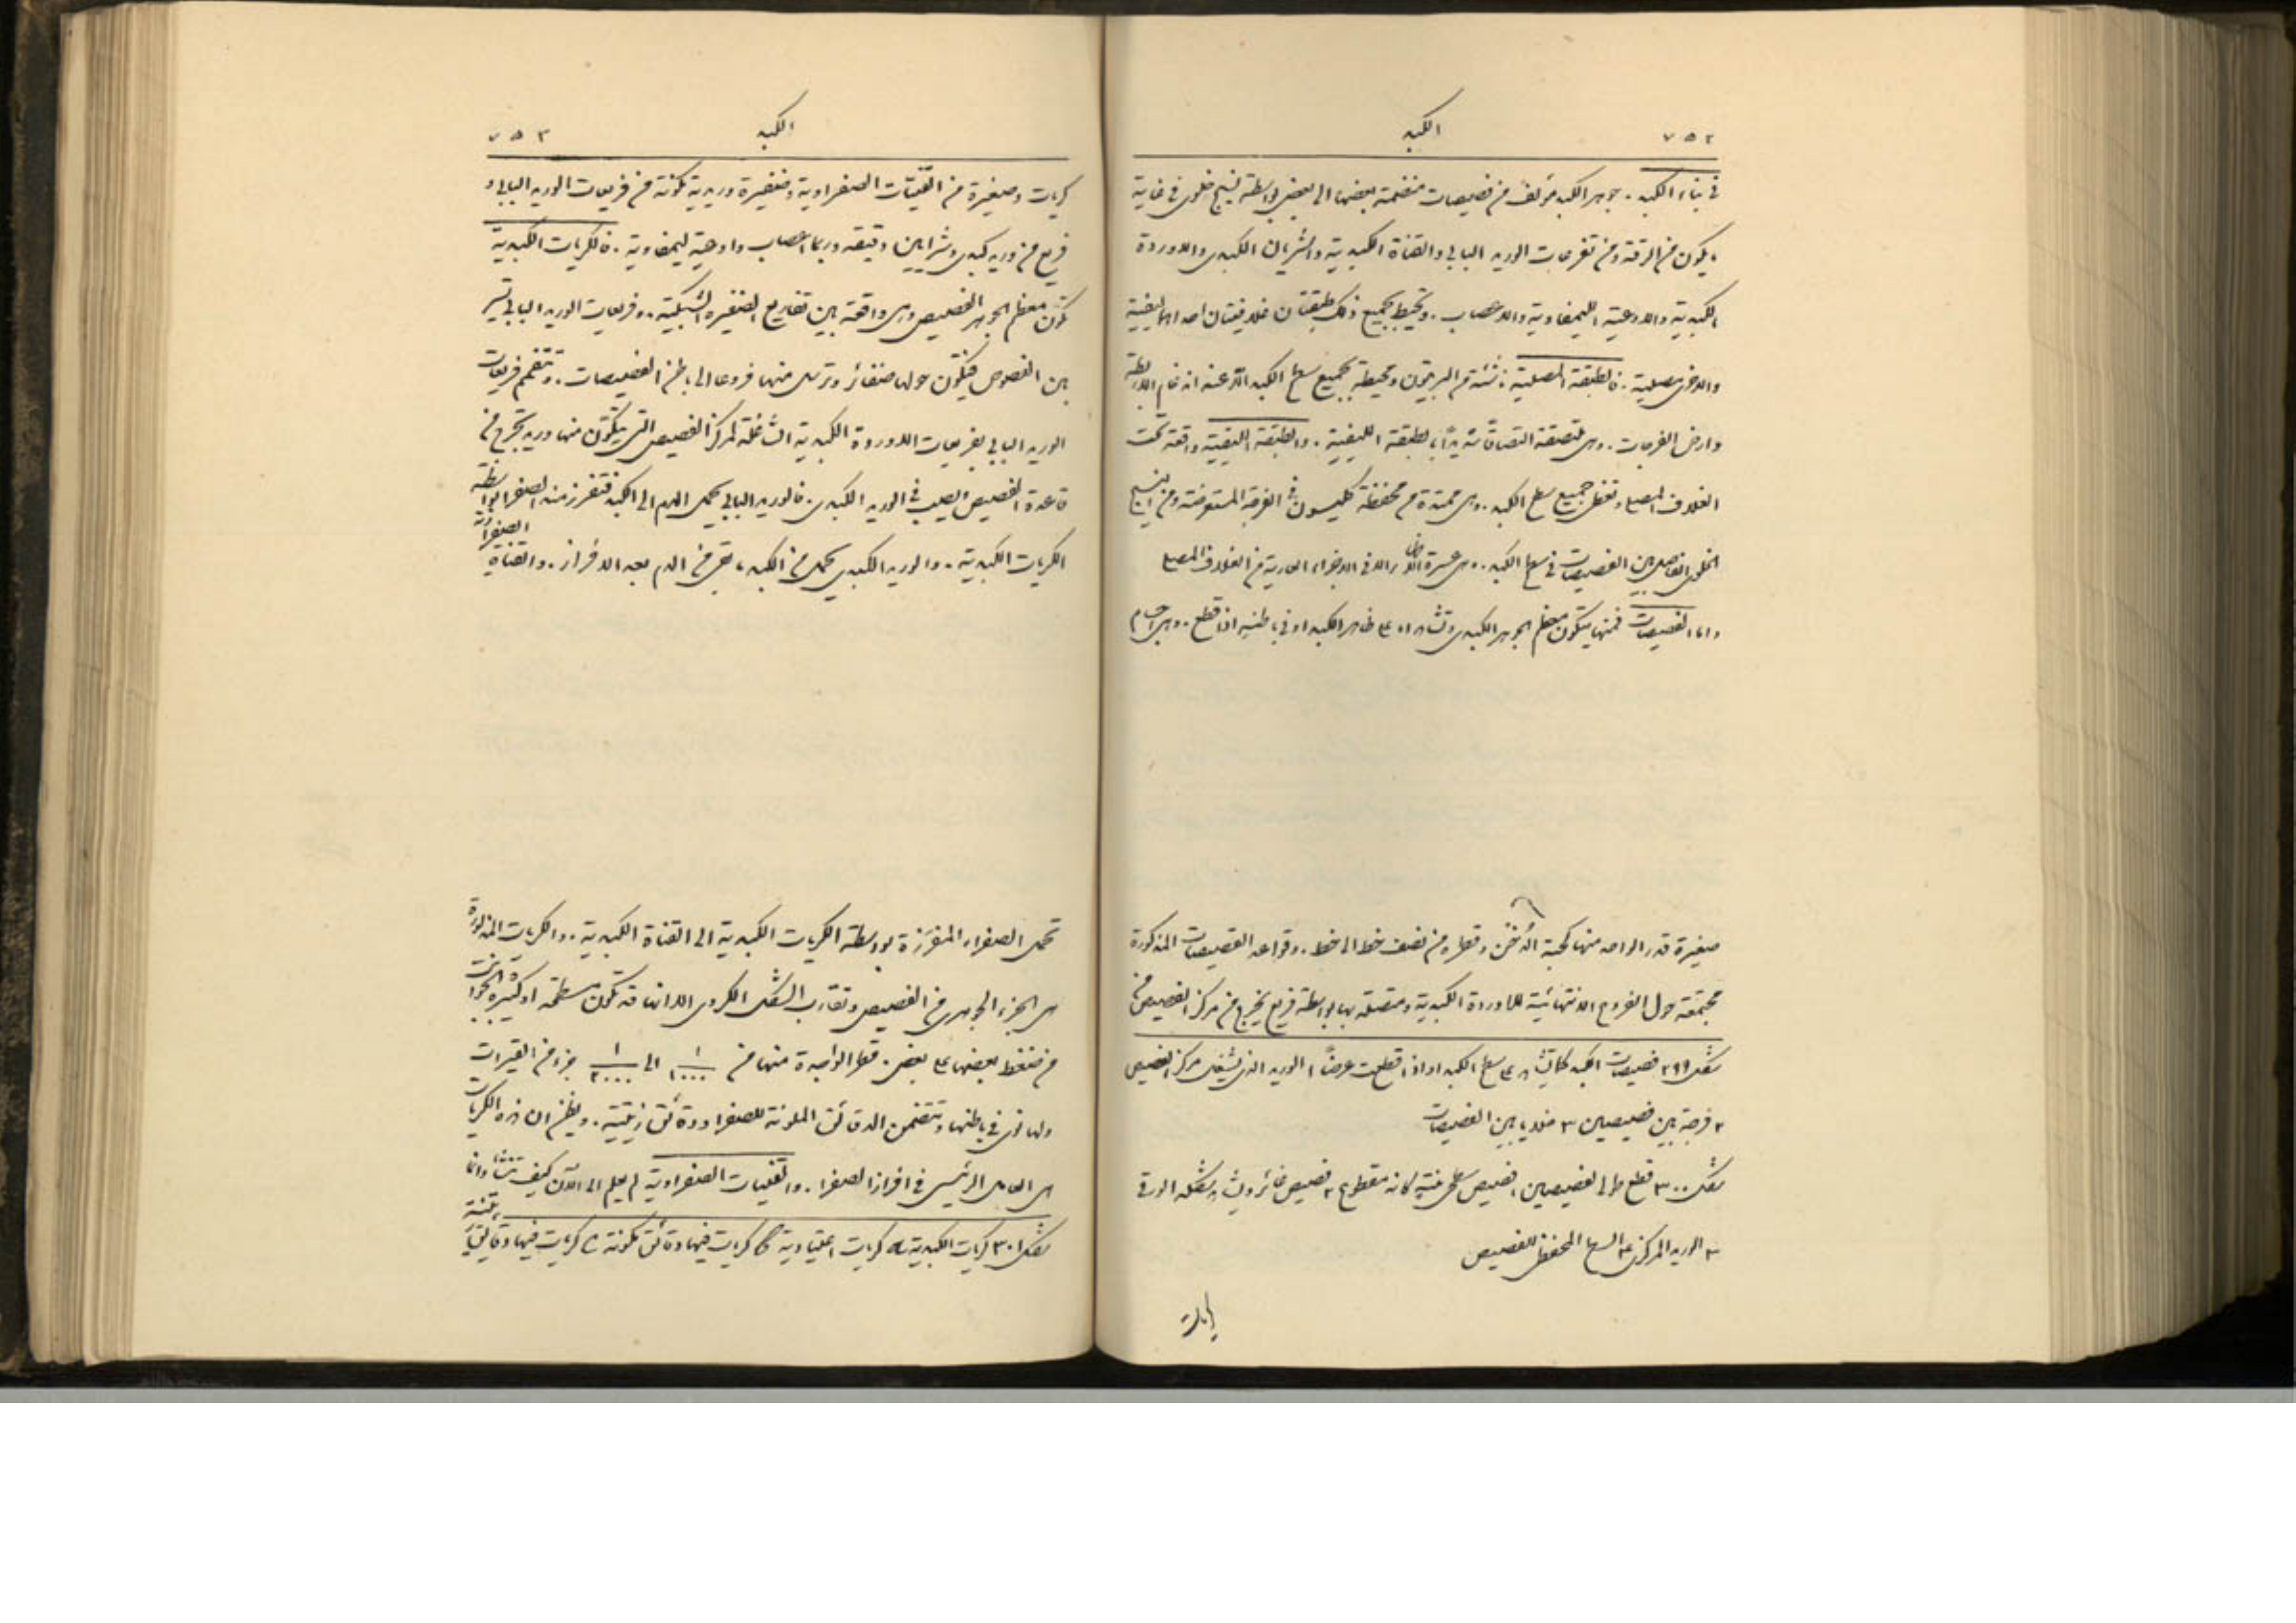 ٧٥٢ الكبد
في بناء الكبد . جوهر الكبد مؤلف من فصيصات منضمة بعضها الى بعض بواسطة نسيج خلوي في غاية
ما يكون من الرقة ومن تفرعات الوريد البابي والقناة الكبدية والشريان الكبدي والاوردة
الكبدية والاوعية الليمفاوية والاعصاب . ويحيط بجميع ذلك طبقتان غلافيتان احداهما ليفية
والاخرى مصلية . فالطبقة المصلية ناشئة من البريتون ومحيطة بجميع سطح الكبد الا عند اندغام الاربطة
وارض الفرجات . وهي ملتصقة التصاقا شديدًا بالطبقة الليفية . والطبقة الليفية واقعة تحت
الغلاف المصلي وتغطي جميع سطح الكبد . وهي ممتدة من محفظة كليسون في الفرجة المستعرضة ومن النسيج
الخلوي الفاصل بين الفصيصات في سطح الكبد . وهي عسرة الا في الاجزاء العارية من الغلاف المصلي
واما الفصيصات فمنها يتكون معظم الجوهر الكبدي وتشاهد على ظاهر الكبد او في باطنه اذا قطع . وهي اجسام
صغيرة قدر الواحد منها كحبة الدُخْن وقطره من نصف خط الى خط . وقواعد الفصيصات المذكورة
مجتمعة حول الفروع الانتهائية للاوردة الكبدية ومتصلة بها بواسطة فريع يخرج من مركز الفصيص من
شكل ٢٩٩ فصيصات الكبد كما تشاهد على سطح الكبد او اذا قطعت عرضًا ١ الوريد الذي يشغل مركز الفصيص
٢ فرجة بين فصيصين ٣ خلايا بين الفصيصات
شكل ٣٠٠ قطع طولي لفصيصين ١ فصيص سطحي منتهٍ كانه مقطوع ٢ فصيص غائر ويشاهد شكله الورقي
٣ الوريد المركزي ٤ السطح المحفظي للفصيص
كريات
الكبد ٧٥٣
كريات وصغيرة من القنيات الصفراوية وضفيرة وريدية مكونة من فريعات الوريد البابي و
فريع من وريد كبدي وشرايين دقيقة وربما اعصاب واوعية ليمفاوية . فالكريات الكبدية
تكون معظم الجوهر الفصيصي وهي واقعة بين تفاريع الضفيرة الشبكية . وفريعات الوريد البابي تسير
بين الفصوص فيتكون حولها ضفائر وترسل منها فروعا الى باطن الفصيصات . وتتفمم فريعات
الوريد البابي بفريعات الاوردة الكبدية الشاغلة لمركز الفصيص التي يتكون منها وريد يخرج من
قاعدة الفصيص ليصب في الوريد الكبدي . فالوريد البابي يحمل الدم الى الكبد فتفرز منه الصفرا بواسطة
الكريات الكبدية . والوريد الكبدي يحمل من الكبد ما بقي من الدم بعد الافراز . والقناة الصفراوية
تحمل الصفراء المفرزة بواسطة الكريات الكبدية الى القناة الكبدية . والكريات المذكورة
هي الجزء الجوهري من الفصيص وتقارب الشكل الكروي الا انها قد تكون مسطحة او كثيرة الجوانب
من ضغط بعضها على بعض . قطر الواحدة منها من ١/١٠٠٠ الى ١/٢٠٠٠ جزء من القيراط
ولها نوى في باطنها وتتضمن الدقائق الملونة للصفرا ودقائق زيتية . ويظن ان هذه الكريات
هي العامل الرئيسي في افراز الصفرا . والقنيات الصفراوية لم يعلم الى الآن كيف تنشأ وانما
شكل ٣٠١ كريات الكبدية a كريات اعتيادية b كريات فيها دقائق ملونة c كريات فيها دقائق زيتية